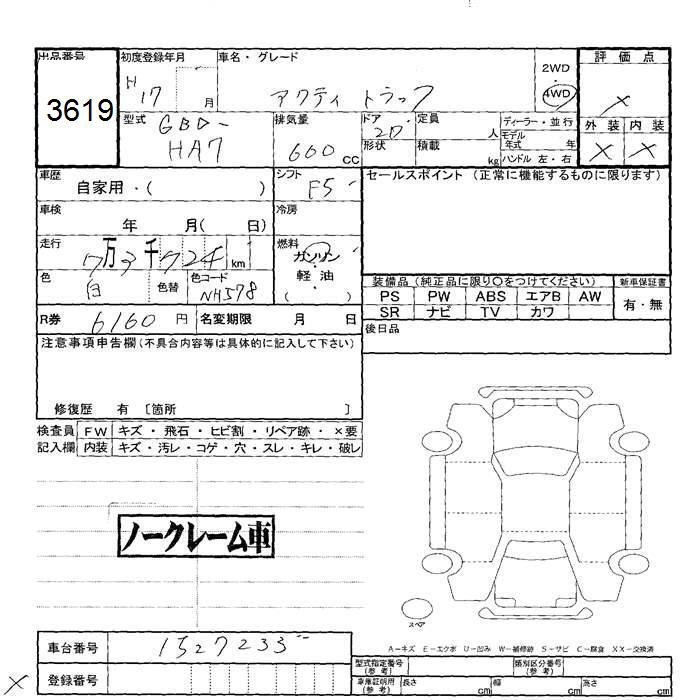 出品番号 初度登録年月 車名・グレード 2WD 評価点
3619 H17 月 アクティ トラック 4WD ×
型式 GBD-HA7 排気量 600cc ドア 2D 形状 定員 人 積載 kg ディーラー・並行 モデル年式 年 ハンドル 左・右 外装 内装
× ×
車歴 自家用・( ) シフト F5 セールスポイント (正常に機能するものに限ります)
車検 年 月( 日) 冷房
走行 7万3千724km 燃料 ガソリン・軽油・( )
色 白 色替 色コード NH578 装備品 (純正品に限り○をつけてください) 新車保証書
PS PW ABS エアB AW 有・無
SR ナビ TV カワ
R券 6160円 名変期限 月 日 後日品
注意事項申告欄(不具合内容等は具体的に記入して下さい)
修復歴 有 〔箇所 〕
検査員 FW キズ・飛石・ヒビ割・リペア跡・×要
記入欄 内装 キズ・汚レ・コゲ・穴・スレ・キレ・破レ
ノークレーム車
スペア
A-キズ E-エクボ U-凹み W-補修跡 S-サビ C-腐食 XX-交換済
車台番号 1527233
型式指定番号(参考) 類別区分番号(参考)
× 登録番号 車庫証明用(参考) 長さ cm 幅 cm 高さ cm